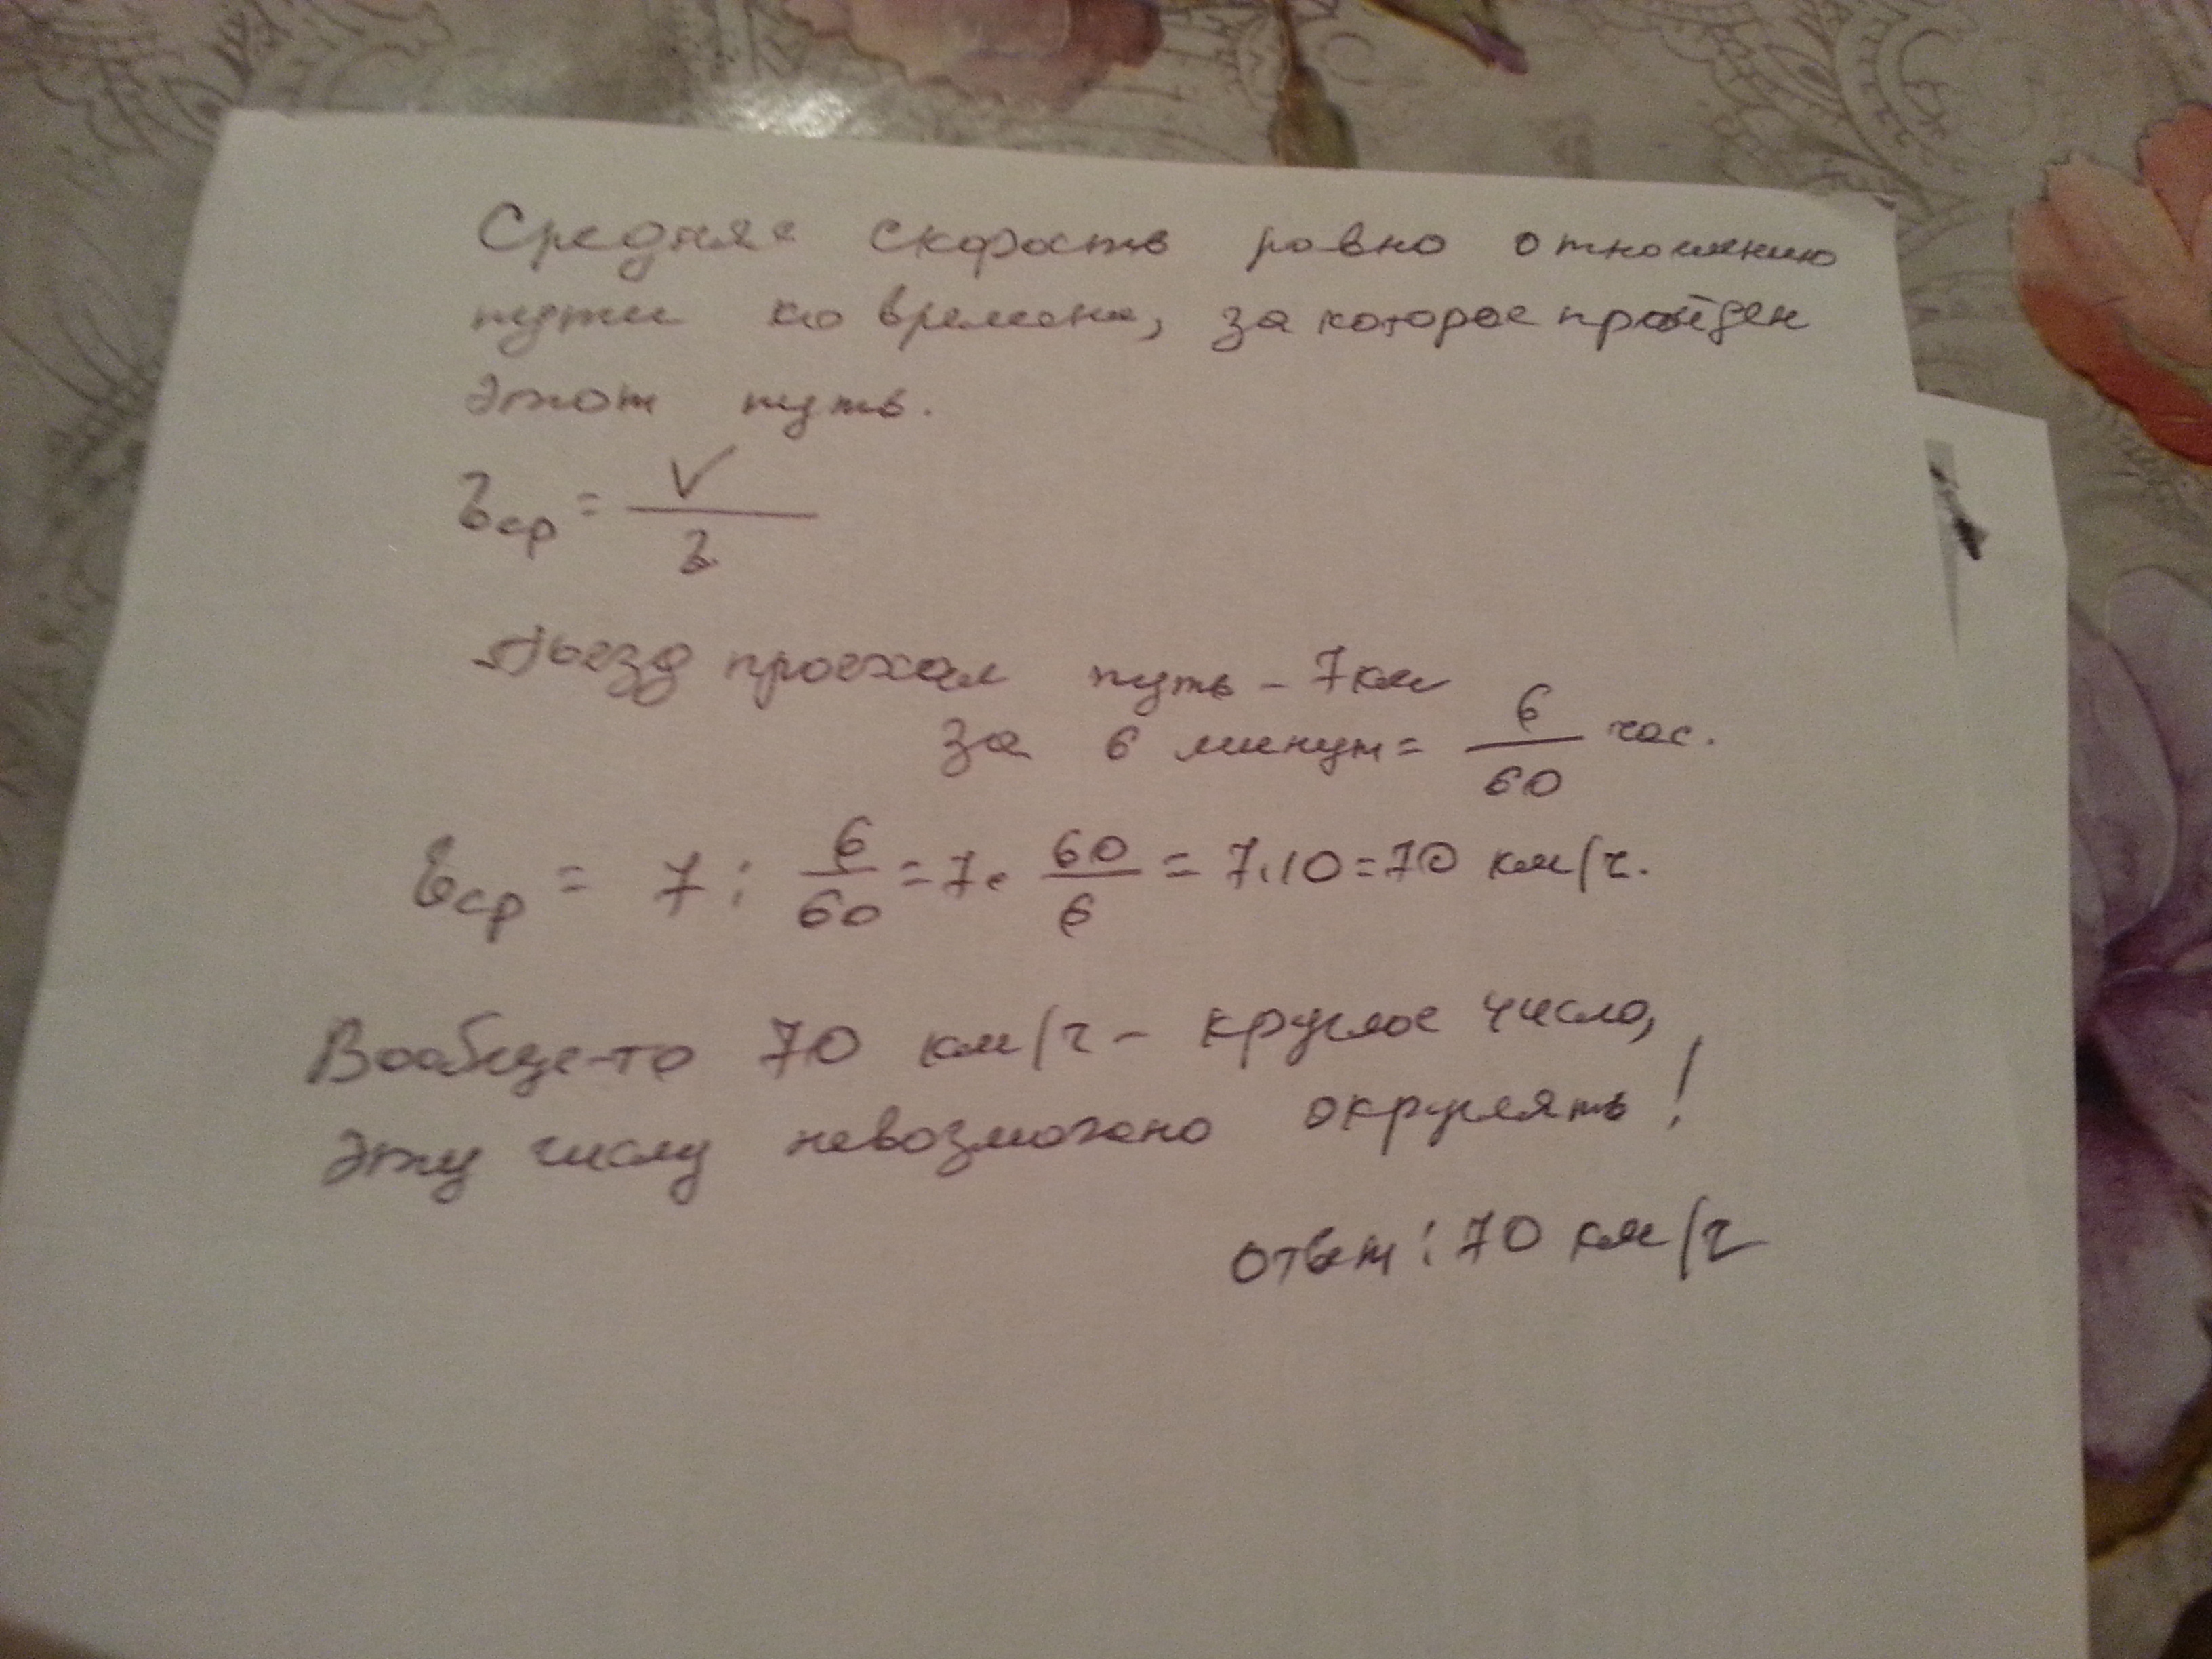 Средняя скорость равно отношению
пути ко времени, за которое пройден
этот путь.
𝒱ср = V / 2
Поезд проехал путь – 7 км
за 6 минут = 6/60 час.
𝒱ср = 7 : 6/60 = 7 · 60/6 = 7 · 10 = 70 км/ч.
Вообще-то 70 км/ч – круглое число,
эту числу невозможно округлять!
ответ : 70 км/ч